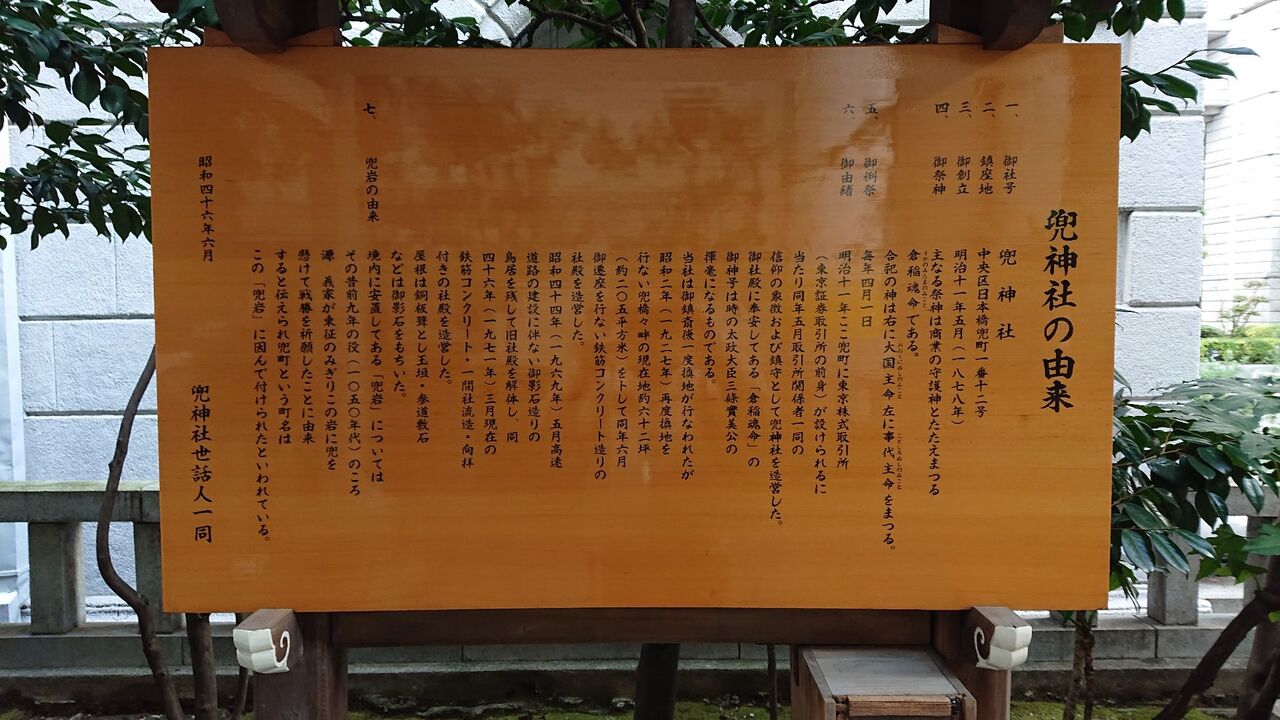 兜神社の由来
一、 御社号 兜神社
二、 鎮座地 中央区日本橋兜町一番十二号
三、 御創立 明治十一年五月（一八七八年）
四、 御祭神 主なる祭神は商業の守護神とたたえまつる
倉稲魂命である。
合祀の神は右に大国主命 左に事代主命をまつる。
五、 御例祭 毎年四月一日
六、 御由緒 明治十一年ここ兜町に東京株式取引所
（東京証券取引所の前身）が設けられるに
当たり同年五月取引所関係者一同の
信仰の象徴および鎮守として兜神社を造営した。
御社殿に奉安してある「倉稲魂命」の
御神号は時の太政大臣三條實美公の
揮毫になるものである。
当社は御鎮斎後一度換地が行なわれたが
昭和二年（一九二七年）再度換地を
行ない兜橋々畔の現在地約六十二坪
（約二〇五平方米）を卜して同年六月
御遷座を行ない鉄筋コンクリート造りの
社殿を造営した。
昭和四十四年（一九六九年）五月高速
道路の建設に伴ない御影石造りの
鳥居を残して旧社殿を解体し、同
四十六年（一九七一年）三月現在の
鉄筋コンクリート・一間社流造・向拝
付きの社殿を造営した。
屋根は銅板葺とし玉垣・参道敷石
などは御影石をもちいた。
七、 兜岩の由来 境内に安置してある「兜岩」については
その昔前九年の役（一〇五〇年代）のころ
源 義家が東征のみぎりこの岩に兜を
懸けて戦勝を祈願したことに由来
すると伝えられ兜町という町名は
この「兜岩」に因んで付けられたといわれている。
昭和四十六年六月
兜神社世話人一同